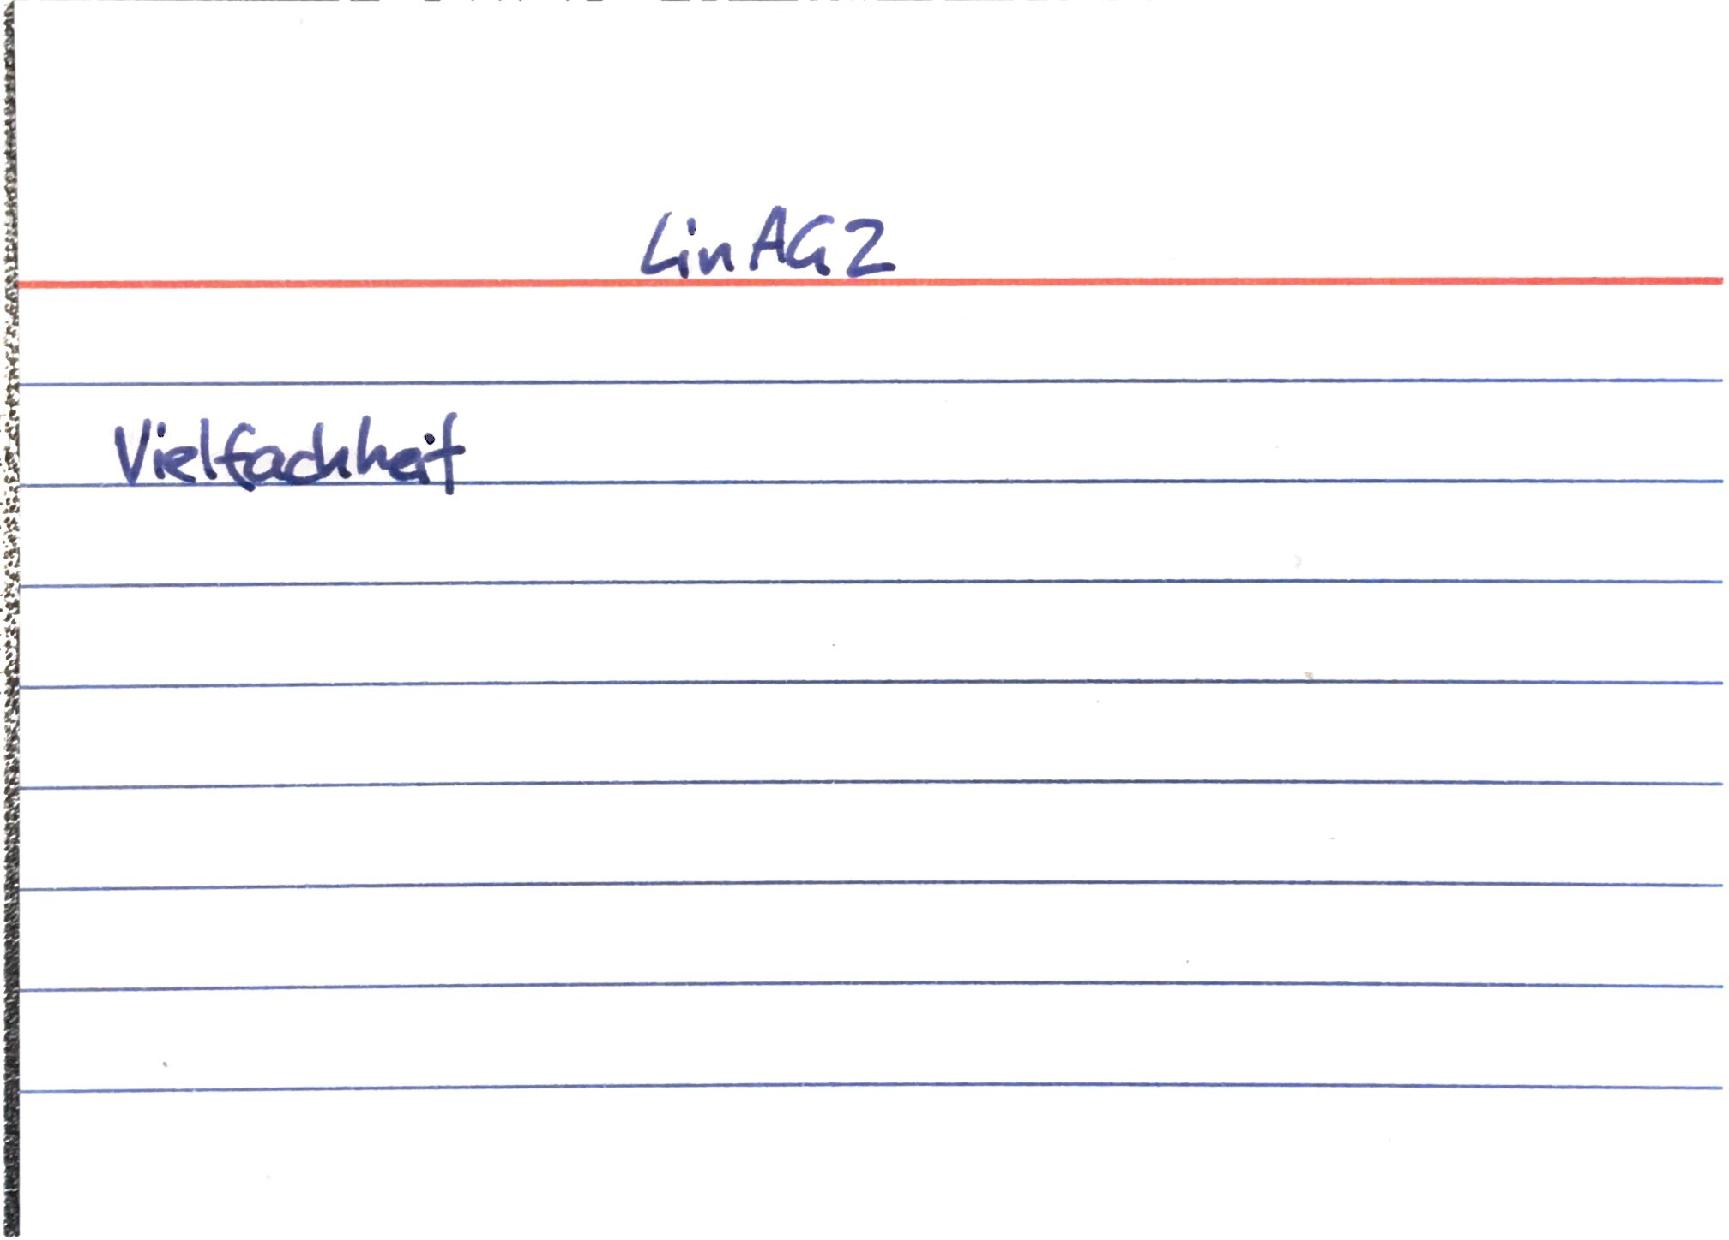 LinAG2
Vielfachheit